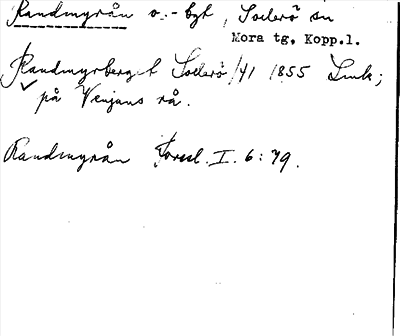 Randmyrån o. -bgt, Sollerö sn
Mora tg, Kopp.l.
Randmyrberget Sollerö /41 1855 Lmk;
på Venjans rå.
Randmyrån Forssl. I. 6:79.